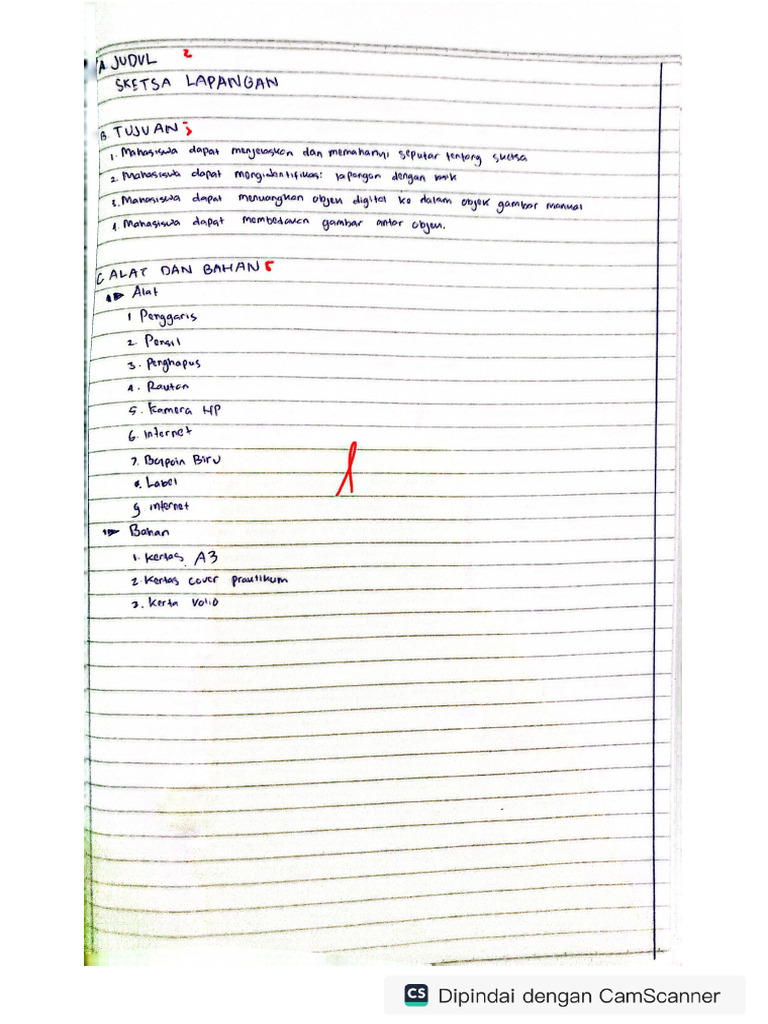 A. JUDUL 2
SKETSA LAPANGAN
B. TUJUAN 3
1. Mahasiswa dapat menjelaskan dan memahami seputar tentang sketsa
2. Mahasiswa dapat mengidentifikasi lapangan dengan baik
3. Mahasiswa dapat menuangkan objek digital ke dalam objek gambar manual
4. Mahasiswa dapat membedakan gambar antar objek.
C. ALAT DAN BAHAN 5
Alat
1 Penggaris
2. Pensil
3. Penghapus
4. Rautan
5. Kamera HP
6. Internet
7. Bolpoin Biru
8. Label
9 internet
Bahan
1. Kertas A3
2. Kertas cover praktikum
3. Kerta Folio
CS Dipindai dengan CamScanner